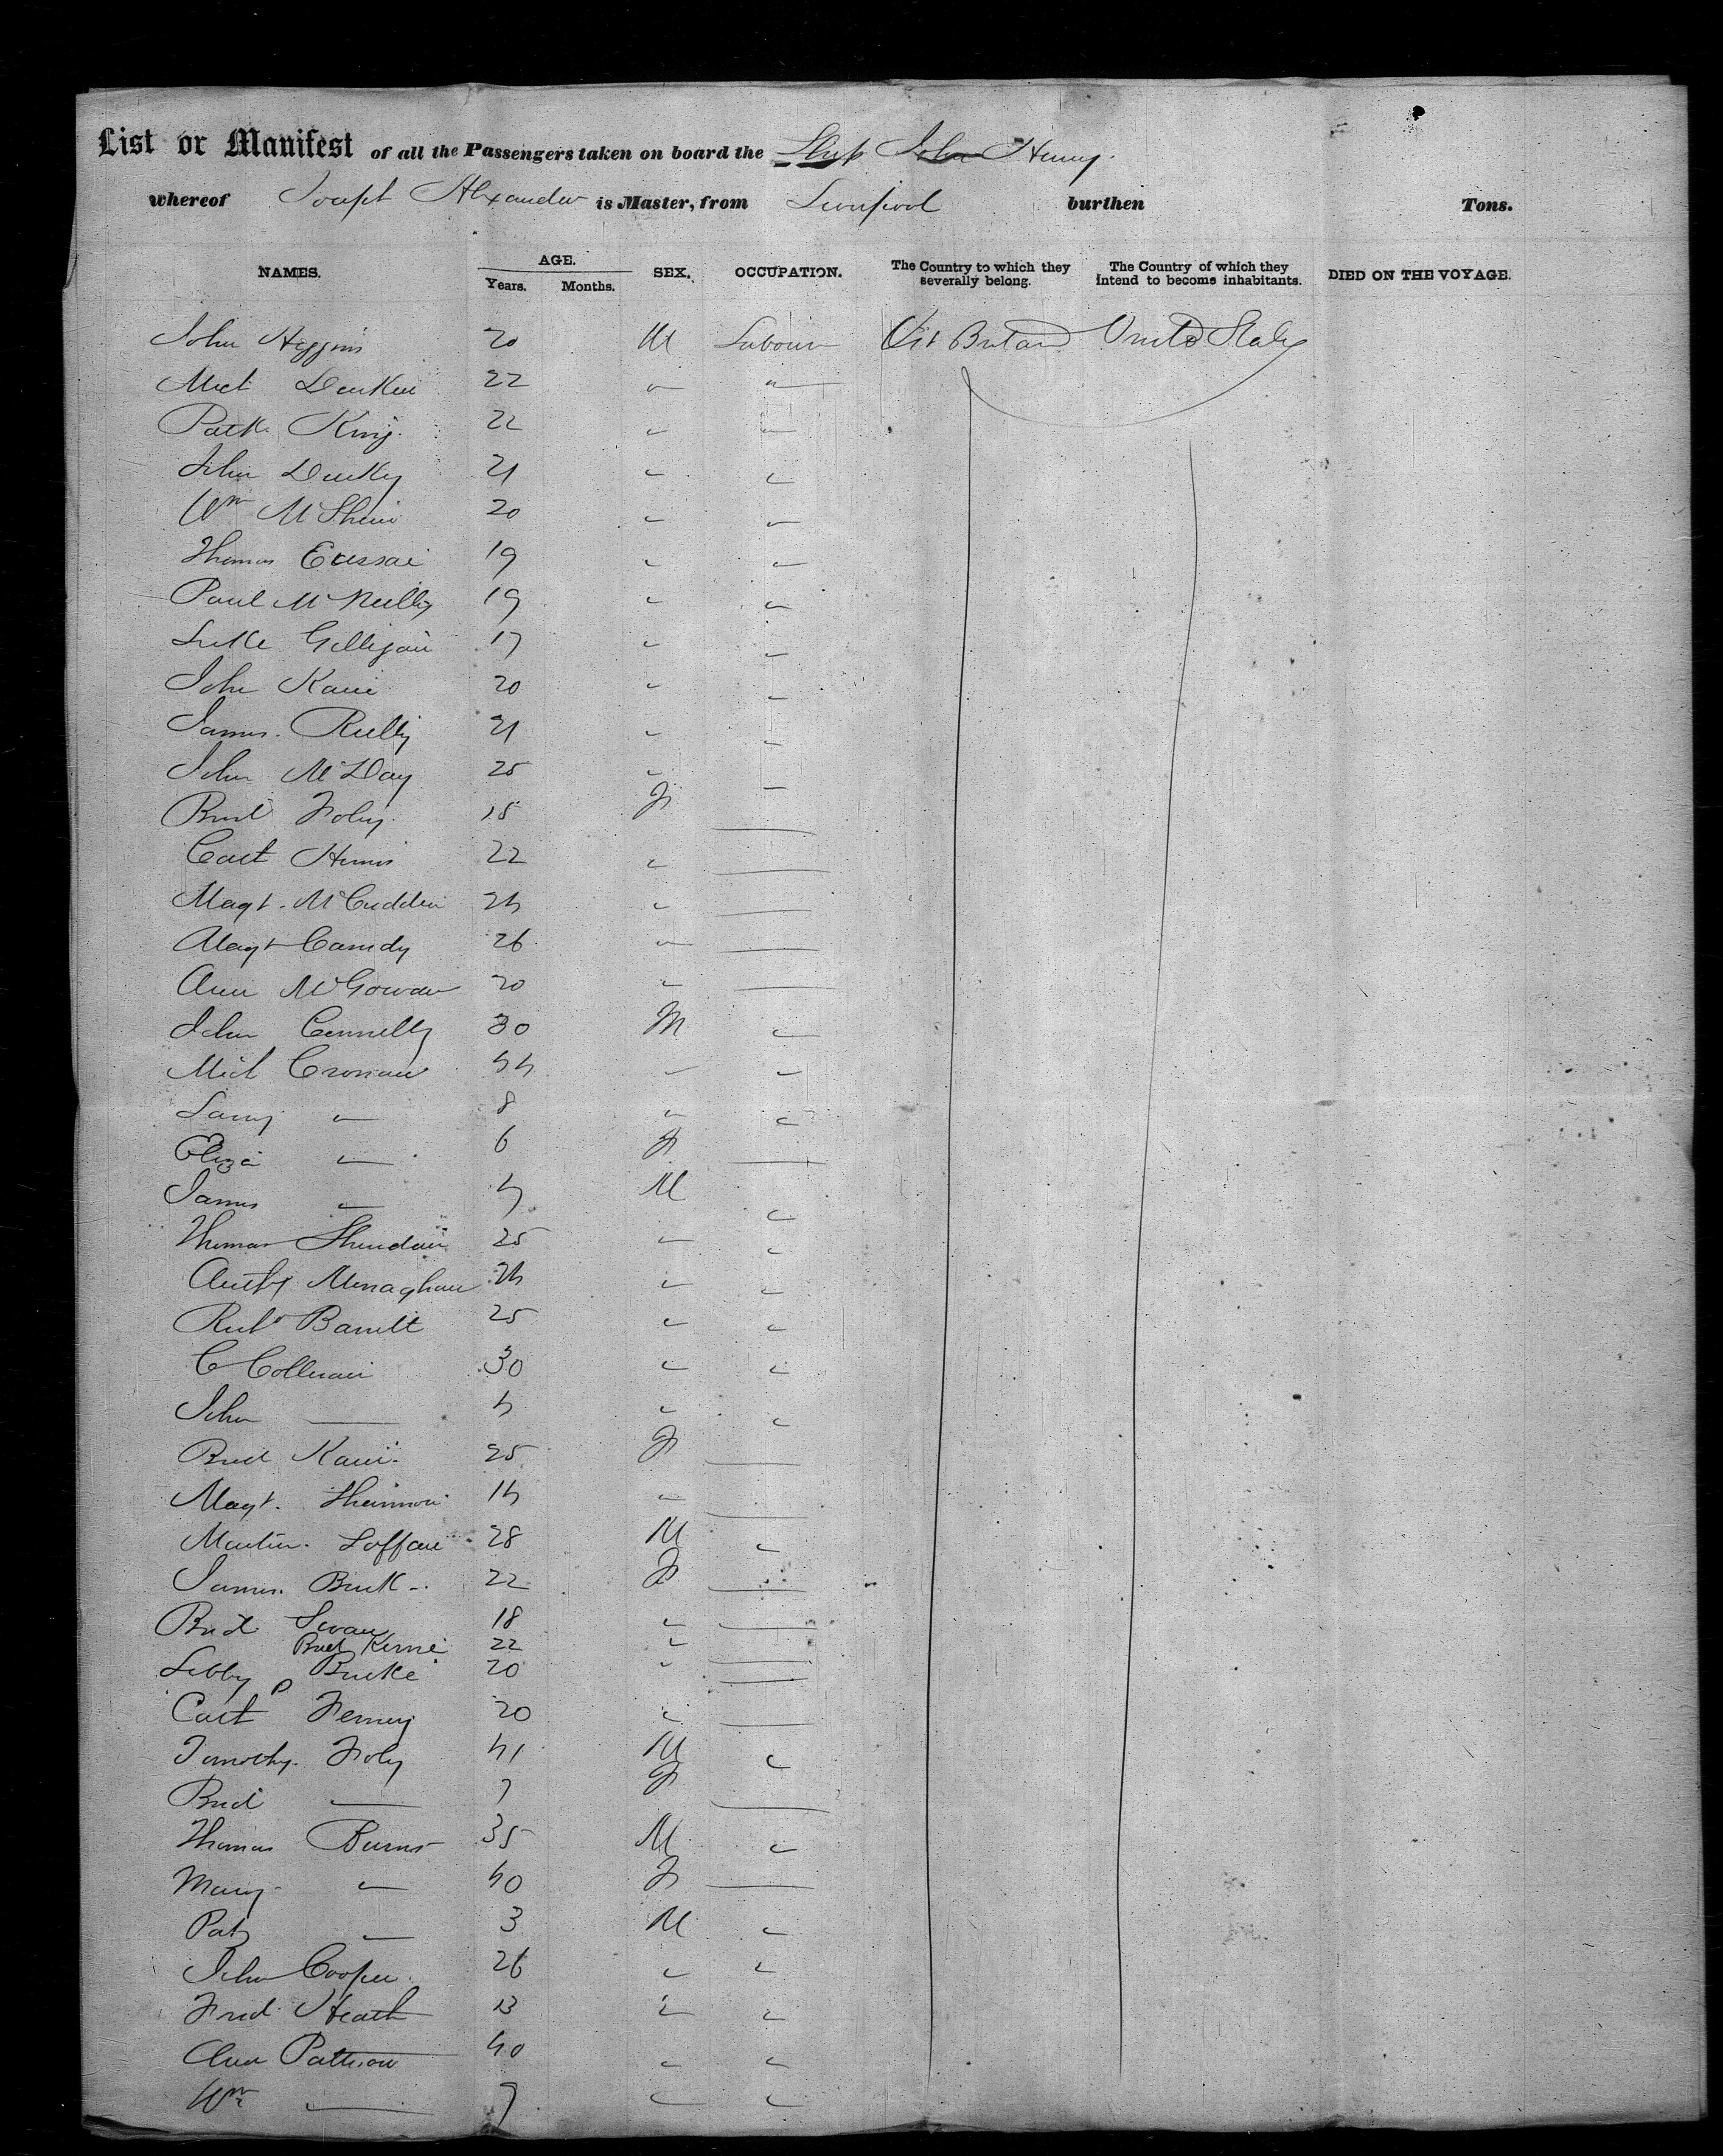 List or Manifest of all the Passengers taken on board the Ship John Henry.
whereof Joseph Alexander is Master, from Liverpool burthen Tons.
NAMES. AGE. Years. Months. SEX. OCCUPATION. The Country to which they severally belong. The Country of which they intend to become inhabitants. DIED ON THE VOYAGE.
John Higgins 20 M Labourer Gt Britain United States
Mich Durkin 22 " "
Patk King 22 " "
John Durkey 21 " "
Wm 20 " "
Thomas 19 " "
Paul McNeilly 19 " "
Luke Gilligan 17 " "
John Kane 20 " "
James Reilly 21 " "
John McDay 25 " "
Brid Foley 18 F
Cact 22 "
Magt McCudden 24 "
Magt Camidy 26 "
Ann McGowan 20 "
John Connelly 30 M "
Mich Cronan 44 " "
Larry " 8 " "
Eliza " 6 F
James " 4 M "
Thomas Sheridan 25 " "
Anthy Monaghan 24 " "
Richd Barrett 25 " "
C Collman 30 " "
John — 4 " "
Brid Kane 25 F
Magt Shannon 14 "
Martin Laffan 28 M "
James Burk 22 F
Brid Swan 18 "
Brid 22 "
Libby P Burke 20 "
Cact 20 "
Timothy Foly 41 M "
Brid — 7 F
Thomas Burns 35 M "
Mary " 40 F
Pat " 3 M "
John Cooper 26 " "
Fred Heath 13 " "
Ann Pattison 40 " "
Wm — 7 " "